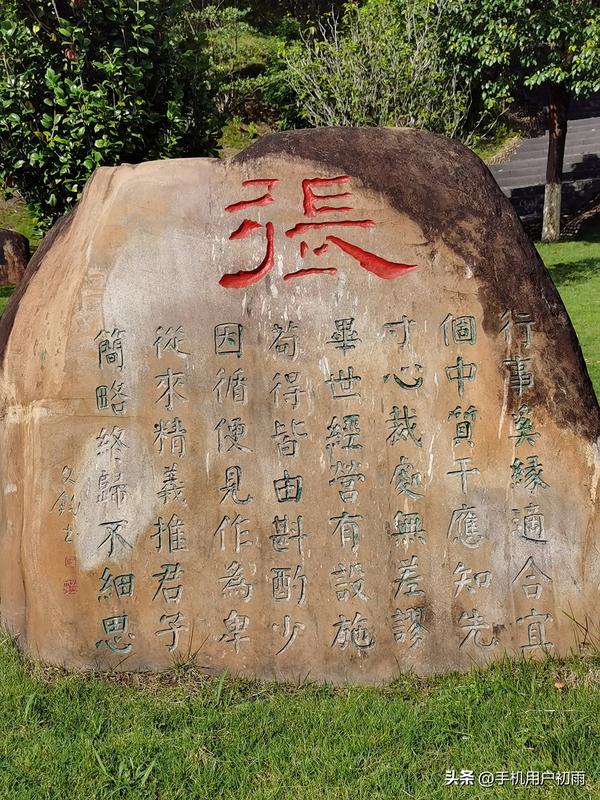 張
行事奚緣適合宜
個中質干應知先
寸心裁處無差謬
畢世經營有設施
苟得皆由斟酌少
因循便見作為卑
從來精義推君子
簡略終歸不細思
头条 @手机用户初雨